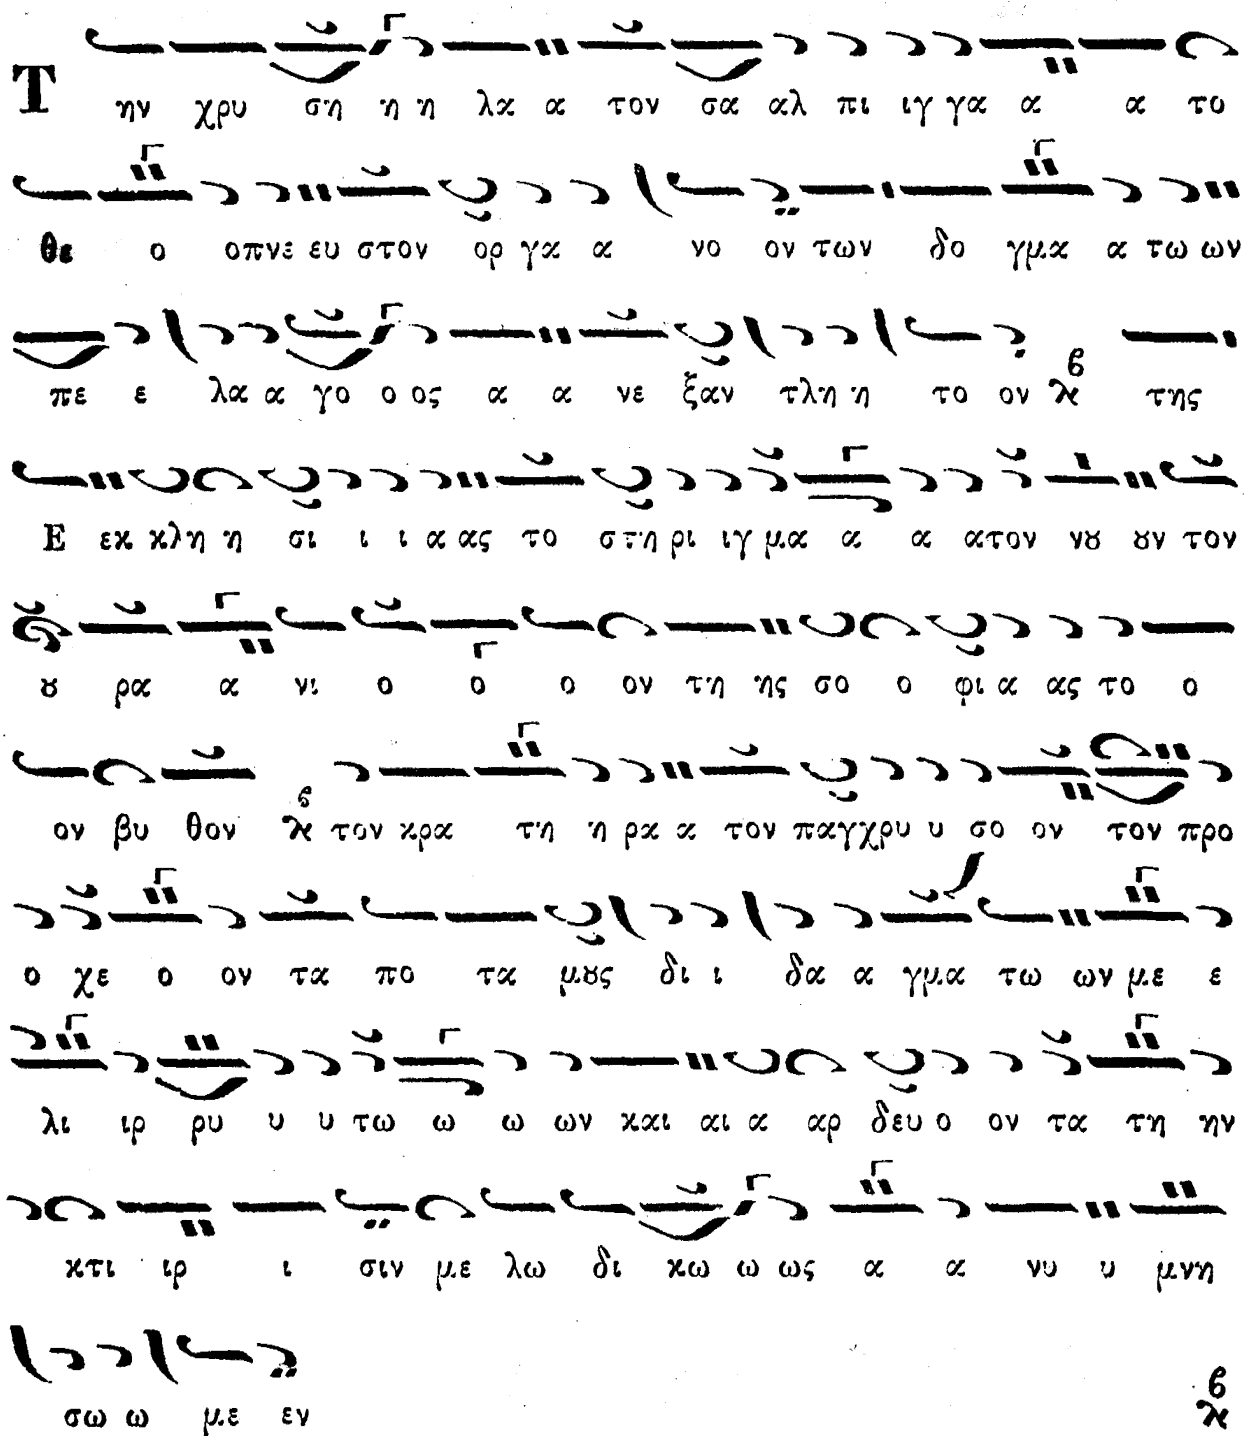 Την χρυ ση η η λα α τον σα αλ πι ιγ γα α α το
θε ο οπνε ευ στον ορ γα α νο ον των δο γμα α τω ων
πε ε λα α γο ο ος α α νε ξαν τλη η το ον της
Ε εκ κλη η σι ι ι α ας το στη ρι ιγ μα α α α τον νȣ ȣν τον
ȣ ρα α νι ο ο ο ον τη ης σο ο φι α ας το ο
ον βυ θον τον κρα τη η ρα α τον παγχρυ υ σο ον τον προ
ο χε ο ον τα πο τα μȣς δι ι δα α γμα τω ων με ε
λι ιρ ρυ υ υ τω ω ω ων και αι α αρ δευ ο ον τα τη ην
κτι ιρ ι σιν με λω δι κω ω ως α α νυ υ μνη
σω ω με εν